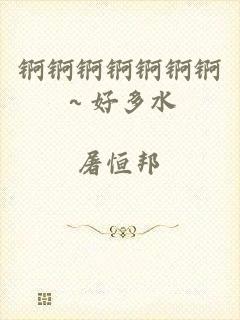 锕锕锕锕锕锕锕
~好多水
屠恒邦